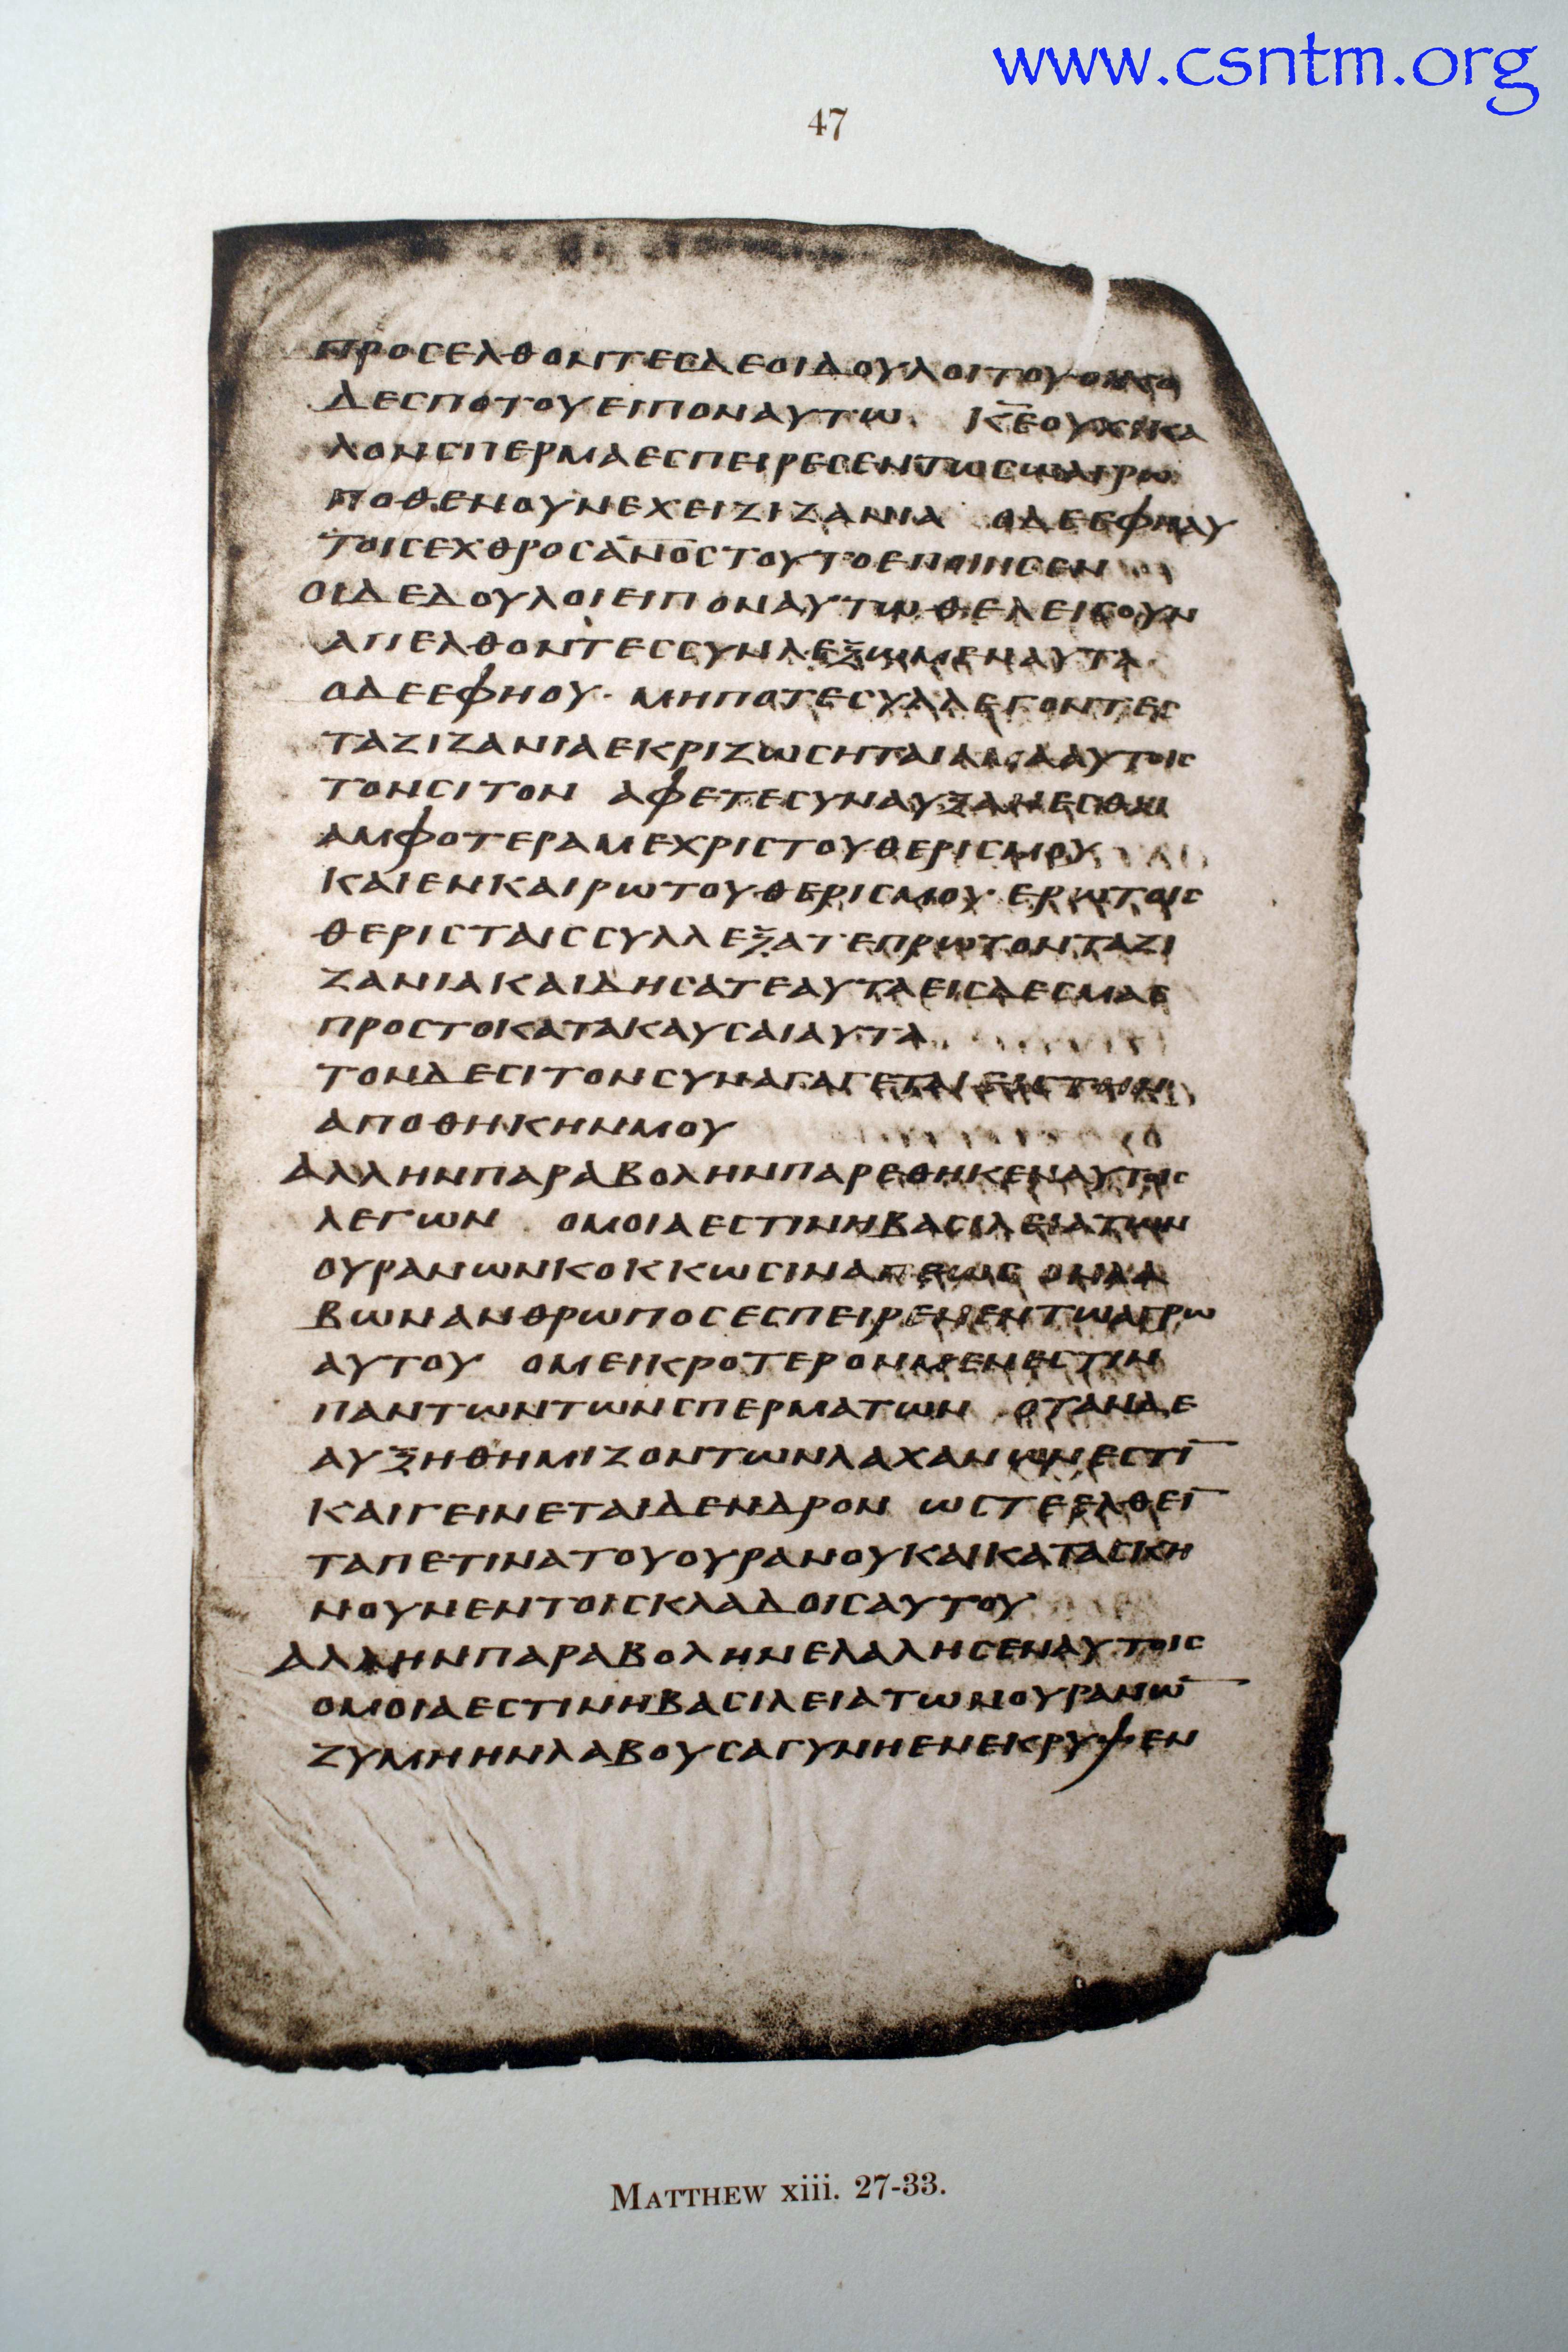 www.csntm.org
47
ΠΡΟСΕΛΘΟΝΤΕСΔΕΟΙΔΟΥΛΟΙΤΟΥΟΙΚΟ
ΔΕСΠΟΤΟΥΕΙΠΟΝΑΥΤΩ Κ̅Ε̅ΟΥΧΙΚΑ
ΛΟΝСΠΕΡΜΑΕСΠΕΙΡΕСΕΝΤΩСΩΑΓΡΩ
ΠΟΘΕΝΟΥΝΕΧΕΙΖΙΖΑΝΙΑ ΟΔΕΕΦΗΑΥ
ΤΟΙСΕΧΘΡΟСΑ̅Ν̅Ο̅С̅ΤΟΥΤΟΕΠΟΙΗСΕΝ
ΟΙΔΕΔΟΥΛΟΙΕΙΠΟΝΑΥΤΩΘΕΛΕΙСΟΥΝ
ΑΠΕΛΘΟΝΤΕССΥΝΛΕΞΩΜΕΝΑΥΤΑ
ΟΔΕΕΦΗΟΥ· ΜΗΠΟΤΕСΥΛΛΕΓΟΝΤΕС
ΤΑΖΙΖΑΝΙΑΕΚΡΙΖΩСΗΤΑΙΑΜΑΑΥΤΟΙС
ΤΟΝСΙΤΟΝ ΑΦΕΤΕСΥΝΑΥΞΑΝΕСΘΑΙ
ΑΜΦΟΤΕΡΑΜΕΧΡΙСΤΟΥΘΕΡΙСΜΟΥ
ΚΑΙΕΝΚΑΙΡΩΤΟΥΘΕΡΙСΜΟΥ·ΕΡΩΤΟΙС
ΘΕΡΙСΤΑΙССΥΛΛΕΞΑΤΕΠΡΩΤΟΝΤΑΖΙ
ΖΑΝΙΑΚΑΙΔΗСΑΤΕΑΥΤΑΕΙСΔΕСΜΑС
ΠΡΟСΤΟΚΑΤΑΚΑΥСΑΙΑΥΤΑ
ΤΟΝΔΕСΙΤΟΝСΥΝΑΓΑΓΕΤΑΙΕΙСΤΗΝ
ΑΠΟΘΗΚΗΝΜΟΥ
ΑΛΛΗΝΠΑΡΑΒΟΛΗΝΠΑΡΕΘΗΚΕΝΑΥΤΟΙС
ΛΕΓΩΝ ΟΜΟΙΑΕСΤΙΝΗΒΑСΙΛΕΙΑΤΩΝ
ΟΥΡΑΝΩΝΚΟΚΚΩСΙΝΑΠΕΩС ΟΝΛΑ
ΒΩΝΑΝΘΡΩΠΟСΕСΠΕΙΡΕΝΕΝΤΩΑΓΡΩ
ΑΥΤΟΥ ΟΜΕΙΚΡΟΤΕΡΟΝΜΕΝΕСΤΙΝ
ΠΑΝΤΩΝΤΩΝСΠΕΡΜΑΤΩΝ ΟΤΑΝΔΕ
ΑΥΞΗΘΗΜΙΖΟΝΤΩΝΛΑΧΑΝΩΝΕСΤΙ̅
ΚΑΙΓΕΙΝΕΤΑΙΔΕΝΔΡΟΝ ΩСΤΕΕΛΘΕΙ̅
ΤΑΠΕΤΙΝΑΤΟΥΟΥΡΑΝΟΥΚΑΙΚΑΤΑСΚΗ
ΝΟΥΝΕΝΤΟΙСΚΛΑΔΟΙСΑΥΤΟΥ
ΑΛΛΗΝΠΑΡΑΒΟΛΗΝΕΛΑΛΗСΕΝΑΥΤΟΙС
ΟΜΟΙΑΕСΤΙΝΗΒΑСΙΛΕΙΑΤΩΝΟΥΡΑΝΩ̅
ΖΥΜΗΗΝΛΑΒΟΥСΑΓΥΝΗΕΝΕΚΡΥΨΕΝ
MATTHEW xiii. 27-33.